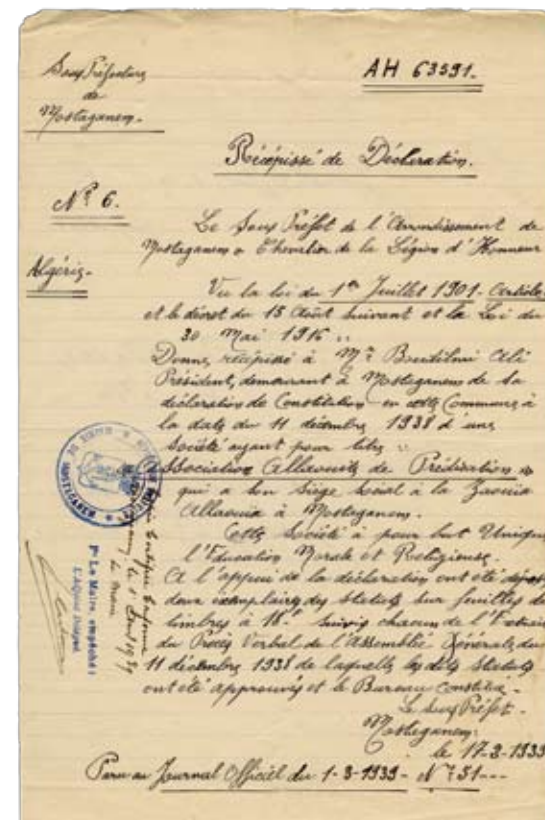 Sous Préfecture
de
Mostaganem.
AH 63591.
Récépissé de Déclaration.
Nº 6.
Algérie.
Le Sous Préfet de l'Arrondissement de
Mostaganem Chevalier de la Légion d'Honneur
Vu la loi du 1er Juillet 1901. Article
et le décret du 15 Août suivant et la Loi du
30 Mai 1916
Donne, récépissé à Mr Bendilmi Ali
Président, demeurant à Mostaganem de sa
déclaration de Constitution en cette Commune à
la date du 11 décembre 1938 d'une
Société ayant pour titre :
Association Allaouite de Prédication
qui a son Siège Social à la Zaouïa
Allaouia à Mostaganem.
Cette Société à pour but Unique
l'Education Morale et Religieuse.
A l'appui de la déclaration ont été
deux exemplaires des statuts sur feuilles de
timbres à 18f suivis chacun de l'Extrait
du Procès Verbal de l'Assemblée Générale du
11 décembre 1938 de laquelle les dits Statuts
ont été approuvés et le Bureau constitué.
Le Sous Préfet.
Mostaganem:
le 17-2-1939
Paru au Journal Officiel du 1-3-1939 - Nº 51---
MOSTAGANEM
Copie Certifiée Conforme
le Maire
Pr Le Maire, empêché:
L'Adjoint Délégué